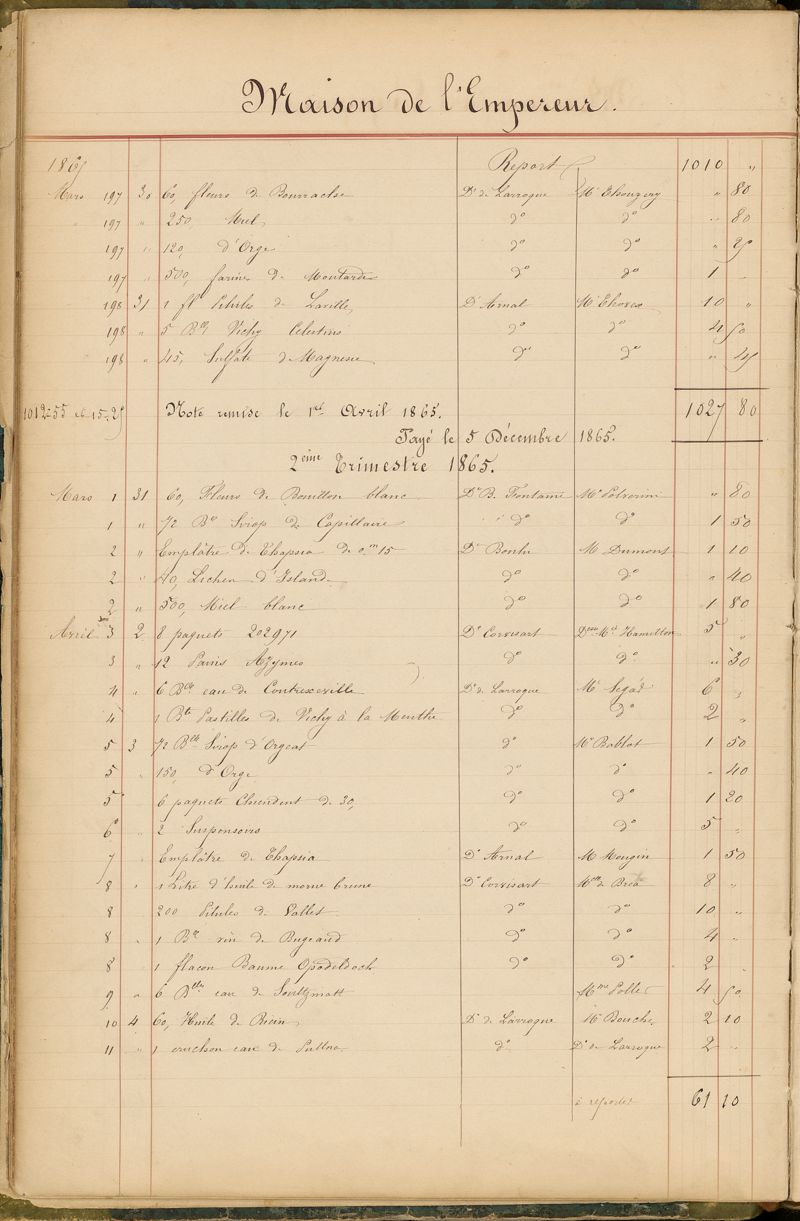 Maison de l'Empereur.
1865 Report 1010 "
Mars 197 30 60, fleurs de Bourrache Dr de Larroque Mr Thouzery " 80
" 197 " 250, Miel do do " 80
197 " 120, d'Orge do do " 20
197 " 500, farine de Moutarde do do 1 "
198 31 1 fl Pilules de Laville Dr Arnal Mr 10 "
198 " 5 Blles Vichy Célestins do do 4 50
198 " 45, Sulfate de Magnésie do do " 45
1012-55 et 15-25 Note remise le 1er Avril 1865. 1027 80
Payé le 5 Décembre 1865.
2ème Trimestre 1865.
Mars 1 31 60, Fleurs de Bouillon blanc Dr B. Fontaine Mr " 80
1 " 1/2 Blle Sirop de Capillaire do do 1 50
2 " Emplâtre de Thapsia de 0m 15 Dr Mr Dumont 1 10
2 " 40, Lichen d'Islande do do " 40
2 " 500, Miel blanc do do 1 80
Avril 3 2 8 paquets 202971 Dr Corvisart Hamilton 5 "
3 " 12 Pains Azymes do do " 30
4 " 6 Blles eau de Contrexeville Dr de Larroque Mr Segád 6 "
4 " 1 Bte Pastilles de Vichy à la Menthe do do 2 "
5 3 1/2 Blle Sirop d'Orgeat do Mr Bablot 1 50
5 " 150, d'Orge do do " 40
5 " 6 paquets Chiendent de 30, do do 1 20
6 " 2 Suspensoirs do do 5 "
7 " Emplâtre de Thapsia Dr Arnal Mr Mougin 1 50
8 " 1 Litre d'huile de morue brune Dr Corvisart Mlle de Bréa 8 "
8 200 Pilules de Vallet do do 10 "
8 " 1 Blle vin de Bugeaud do do 4 "
8 1 flacon Baume Opodeldoch do do 2 "
9 " 6 Blles eau de Soultzmatt Mme Pollet 4 50
10 4 60, Huile de Ricin Dr de Larroque Mr Bouche 2 10
11 " 1 cruchon eau de Pullna do Dr de Larroque 2 "
à reporter 61 10